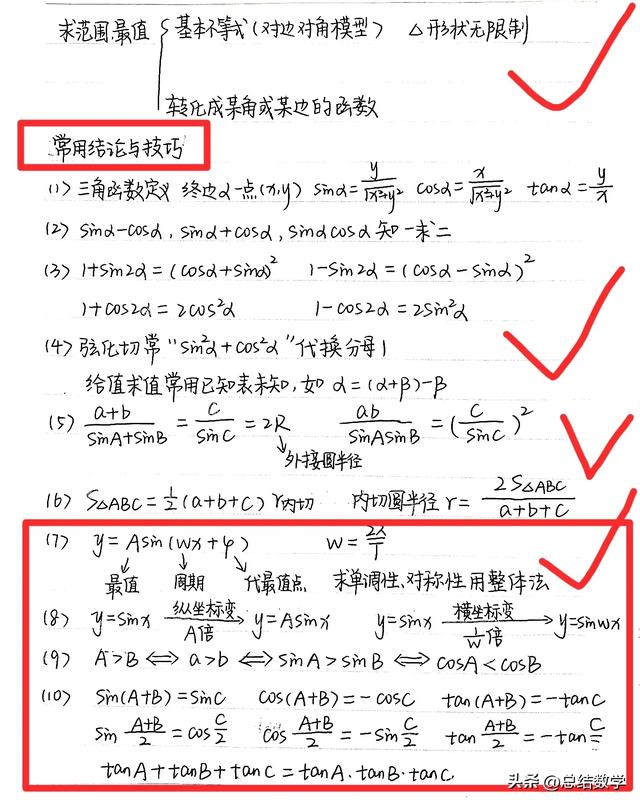 求范围.最值 { 基本不等式(对边对角模型) △形状无限制
转化成某角或某边的函数
常用结论与技巧
(1) 三角函数定义 终边α一点(x,y) sinα=y/√(x²+y²) cosα=x/√(x²+y²) tanα=y/x
(2) sinα-cosα, sinα+cosα, sinαcosα 知一求二
(3) 1+sin2α=(cosα+sinα)² 1-sin2α=(cosα-sinα)²
1+cos2α=2cos²α 1-cos2α=2sin²α
(4) 弦化切常"sin²α+cos²α"代换分母1
给值求值常用已知表未知,如 α=(α+β)-β
(5) (a+b)/(sinA+sinB) = c/sinC = 2R ab/(sinAsinB) = (c/sinC)²
外接圆半径
(6) S△ABC=½(a+b+c)r内切 内切圆半径 r= 2S△ABC/(a+b+c)
(7) y=Asin(wx+φ) w=2π/T
最值 周期 代最值点 求单调性、对称性用整体法
(8) y=sinx 纵坐标变A倍→ y=Asinx y=sinx 横坐标变1/w倍→ y=sinwx
(9) A>B ⟺ a>b ⟺ sinA>sinB ⟺ cosA<cosB
(10) sin(A+B)=sinC cos(A+B)=-cosC tan(A+B)=-tanC
sin (A+B)/2 = cos C/2 cos (A+B)/2 = -sin C/2 tan (A+B)/2 = -tan C/2
tanA+tanB+tanC=tanA·tanB·tanC
头条 @总结数学